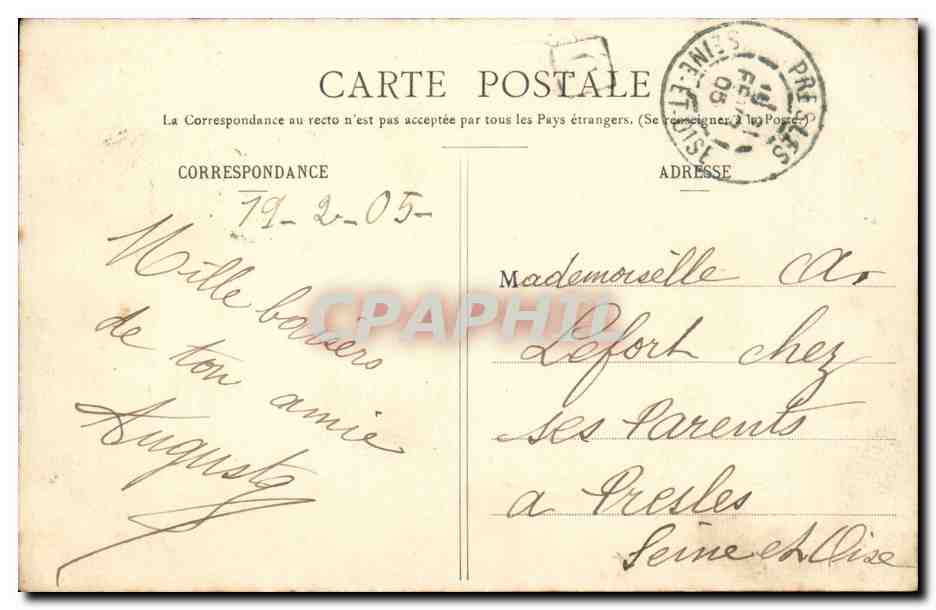 CARTE POSTALE
La Correspondance au recto n'est pas acceptée par tous les Pays étrangers. (Se renseigner à la Poste.)
PRESLES
SEINE-ET-OISE
05
CORRESPONDANCE
19-2-05-
Mille baisers
de ton amie
Augusta
ADRESSE
Mademoiselle A.
Lefort chez
ses Parents
a Presles
Seine et Oise
CPAPHIL